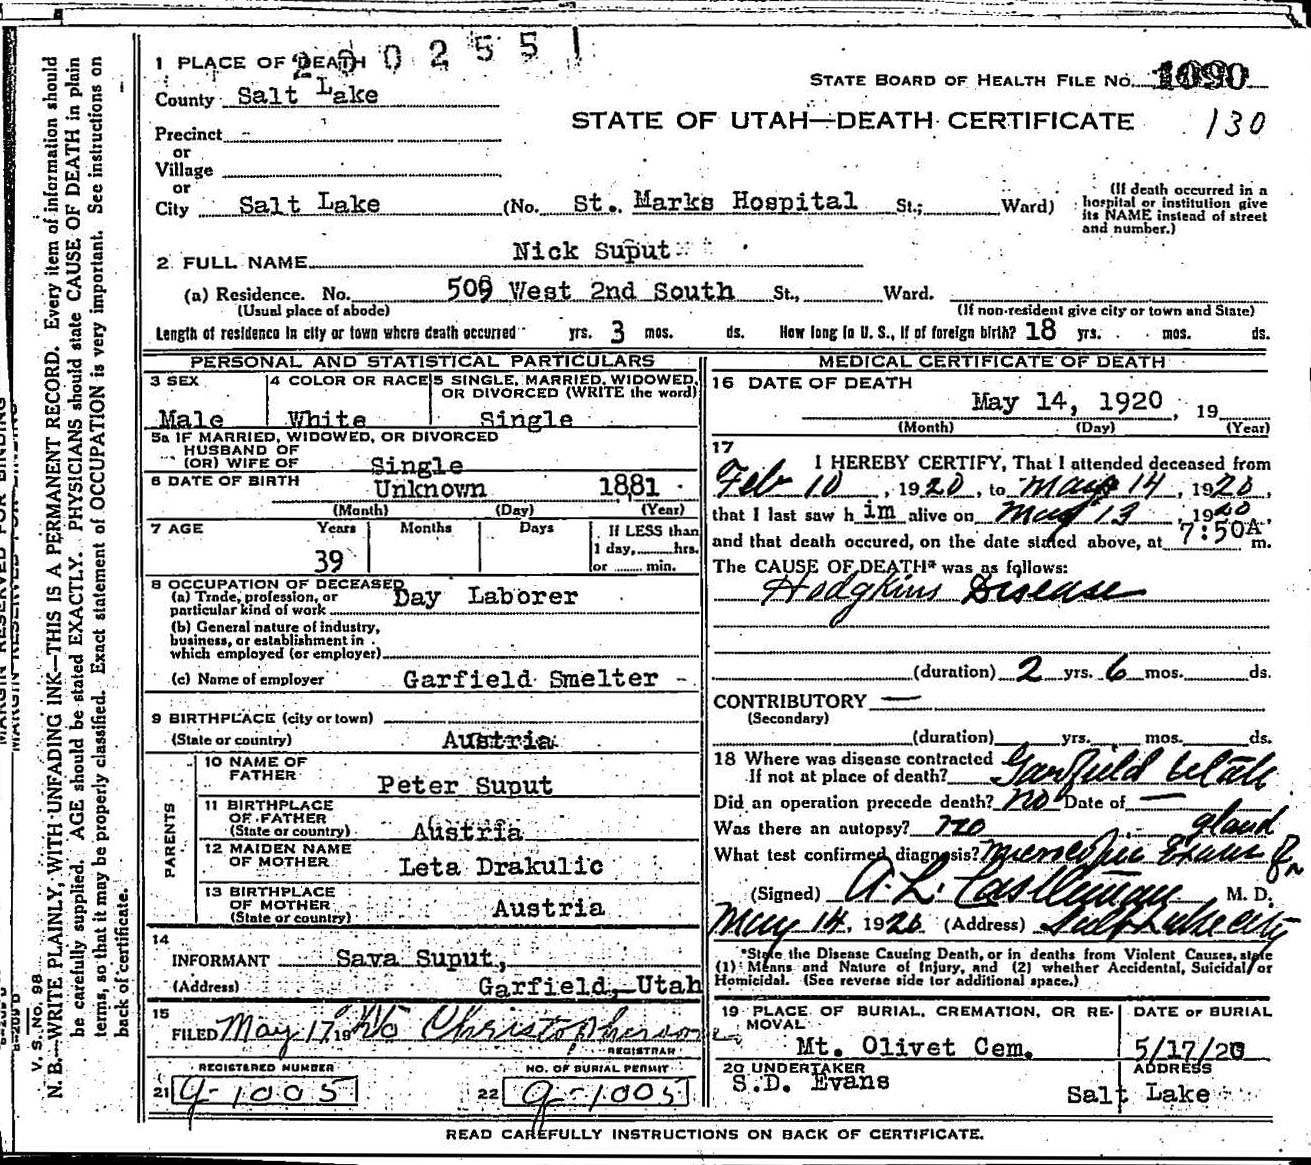 2 0 0 2 5 5 1
1 PLACE OF DEATH
County Salt Lake
STATE BOARD OF HEALTH FILE No. 1090
STATE OF UTAH—DEATH CERTIFICATE 130
Precinct -
or
Village
or
City Salt Lake (No. St. Marks Hospital St.; Ward)
(If death occurred in a
hospital or institution give
its NAME instead of street
and number.)
2 FULL NAME Nick Suput
(a) Residence. No. 509 West 2nd South St., Ward.
(Usual place of abode) (If non-resident give city or town and State)
Length of residence in city or town where death occurred yrs. 3 mos. ds. How long in U. S., if of foreign birth? 18 yrs. mos. ds.
PERSONAL AND STATISTICAL PARTICULARS
3 SEX 4 COLOR OR RACE 5 SINGLE, MARRIED, WIDOWED,
OR DIVORCED (WRITE the word)
Male White Single
5a IF MARRIED, WIDOWED, OR DIVORCED
HUSBAND OF
(OR) WIFE OF Single
6 DATE OF BIRTH Unknown 1881
(Month) (Day) (Year)
7 AGE Years Months Days If LESS than
1 day,......hrs.
39 or ...... min.
8 OCCUPATION OF DECEASED
(a) Trade, profession, or
particular kind of work Day Laborer
(b) General nature of industry,
business, or establishment in
which employed (or employer)
(c) Name of employer Garfield Smelter -
9 BIRTHPLACE (city or town)
(State or country) Austria
PARENTS
10 NAME OF
FATHER Peter Suput
11 BIRTHPLACE
OF FATHER
(State or country) Austria
12 MAIDEN NAME
OF MOTHER Leta Drakulic
13 BIRTHPLACE
OF MOTHER
(State or country) Austria
14
INFORMANT Sava Suput,
(Address) Garfield, Utah
15
FILED May 17, 19
REGISTRAR
REGISTERED NUMBER NO. OF BURIAL PERMIT
21 g-1005 22 g-1005
MEDICAL CERTIFICATE OF DEATH
16 DATE OF DEATH
May 14, 1920, 19
(Month) (Day) (Year)
17
I HEREBY CERTIFY, That I attended deceased from
Feb 10, 1920, to May 14, 1920,
that I last saw h im alive on May 13, 1920,
and that death occured, on the date stated above, at 7:50A m.
The CAUSE OF DEATH* was as follows:
Hodgkins Disease
(duration) 2 yrs. 6 mos. ds.
CONTRIBUTORY —
(Secondary)
(duration) yrs. mos. ds.
18 Where was disease contracted
If not at place of death? Garfield Utah
Did an operation precede death? no Date of —
Was there an autopsy? no
gland
What test confirmed diagnosis? Microscopic Exam of
(Signed) A. L. Castleman M. D.
May 14, 1920 (Address) Salt Lake City
*State the Disease Causing Death, or in deaths from Violent Causes, state
(1) Means and Nature of Injury, and (2) whether Accidental, Suicidal, or
Homicidal. (See reverse side for additional space.)
19 PLACE OF BURIAL, CREMATION, OR RE-
MOVAL DATE OF BURIAL
Mt. Olivet Cem. 5/17/20
20 UNDERTAKER ADDRESS
S.D. Evans Salt Lake
READ CAREFULLY INSTRUCTIONS ON BACK OF CERTIFICATE.
MARGIN RESERVED FOR BINDING
V. S. No. 98
N. B.—WRITE PLAINLY, WITH UNFADING INK—THIS IS A PERMANENT RECORD. Every item of information should
be carefully supplied. AGE should be stated EXACTLY. PHYSICIANS should state CAUSE OF DEATH in plain
terms, so that it may be properly classified. Exact statement of OCCUPATION is very important. See instructions on
back of certificate.